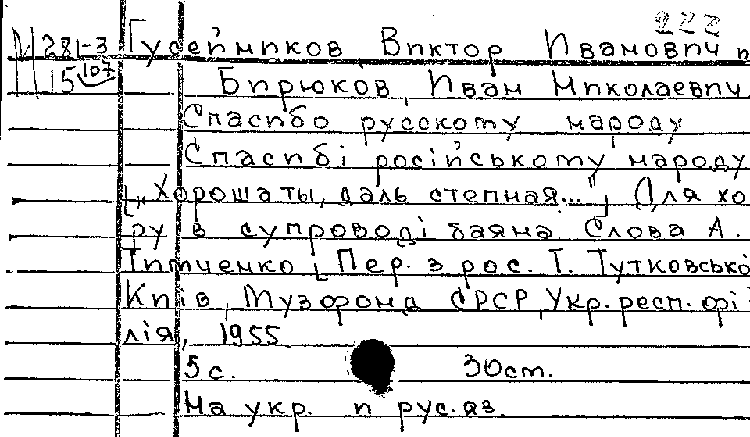 222
М 281-3 Гусейников, Виктор Иванович и
15107 Бирюков, Иван Николаевич
Спасибо русскому народу
Спасибі російському народу
["Хороша ты, даль степная..."], Для хо
ру в супроводі баяна. Слова А.
Титченко, Пер. з рос. Т. Тутковсько
Київ, Музфонд СРСР, Укр. респ. фі
лія, 1955
5 с. 30 ст.
На укр. и рус. яз.